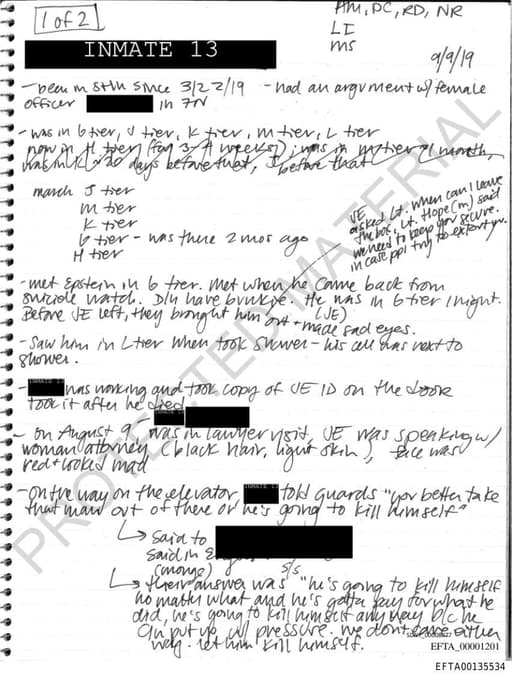 1 of 2
HM, PC, RD, NR
LI
MS
INMATE 13
9/9/19
- been in 8th since 3/22/19 - had an argument w/ female
officer in 7N
- was in G tier, J tier, K tier, M tier, L tier
now in H tier (for 3/4 weeks); was in M tier (1 month,
was in K ~20 days before that, J before that
march J tier
M tier
K tier
G tier - was there 2 mos ago
H tier
JE
asked Lt. when can I leave
the box, Lt. Hope (m) said
we need to keep you secure.
in case ppl try to extort you.
- met Epstein in G tier. Met when he came back from
suicide watch. Didn't have bunkie. He was in G tier 1 night.
(JE)
Before JE left, they brought him out + made sad eyes.
- Saw him in L tier when took shower - his cell was next to
shower.
- INMATE 13 was working and took copy of JE ID on the door
took it after he died
- on August 9 - INMATE 13 was in lawyer visit, JE was speaking w/
woman attorney (black hair, light skin), face was
red + looked mad
- On the way on the elevator, INMATE 13 told guards "you better take
that man out of there or he's going to kill himself"
↳ Said to
said in
s/s
↳ their answer was "he's going to kill himself
no matter what and he's gotta pay for what he
did, he's going to kill himself any way b/c he
can put up w/ pressure. we don't care either
way. let him kill himself.
PROTECTED MATERIAL
EFTA_00001201
EFTA00135534